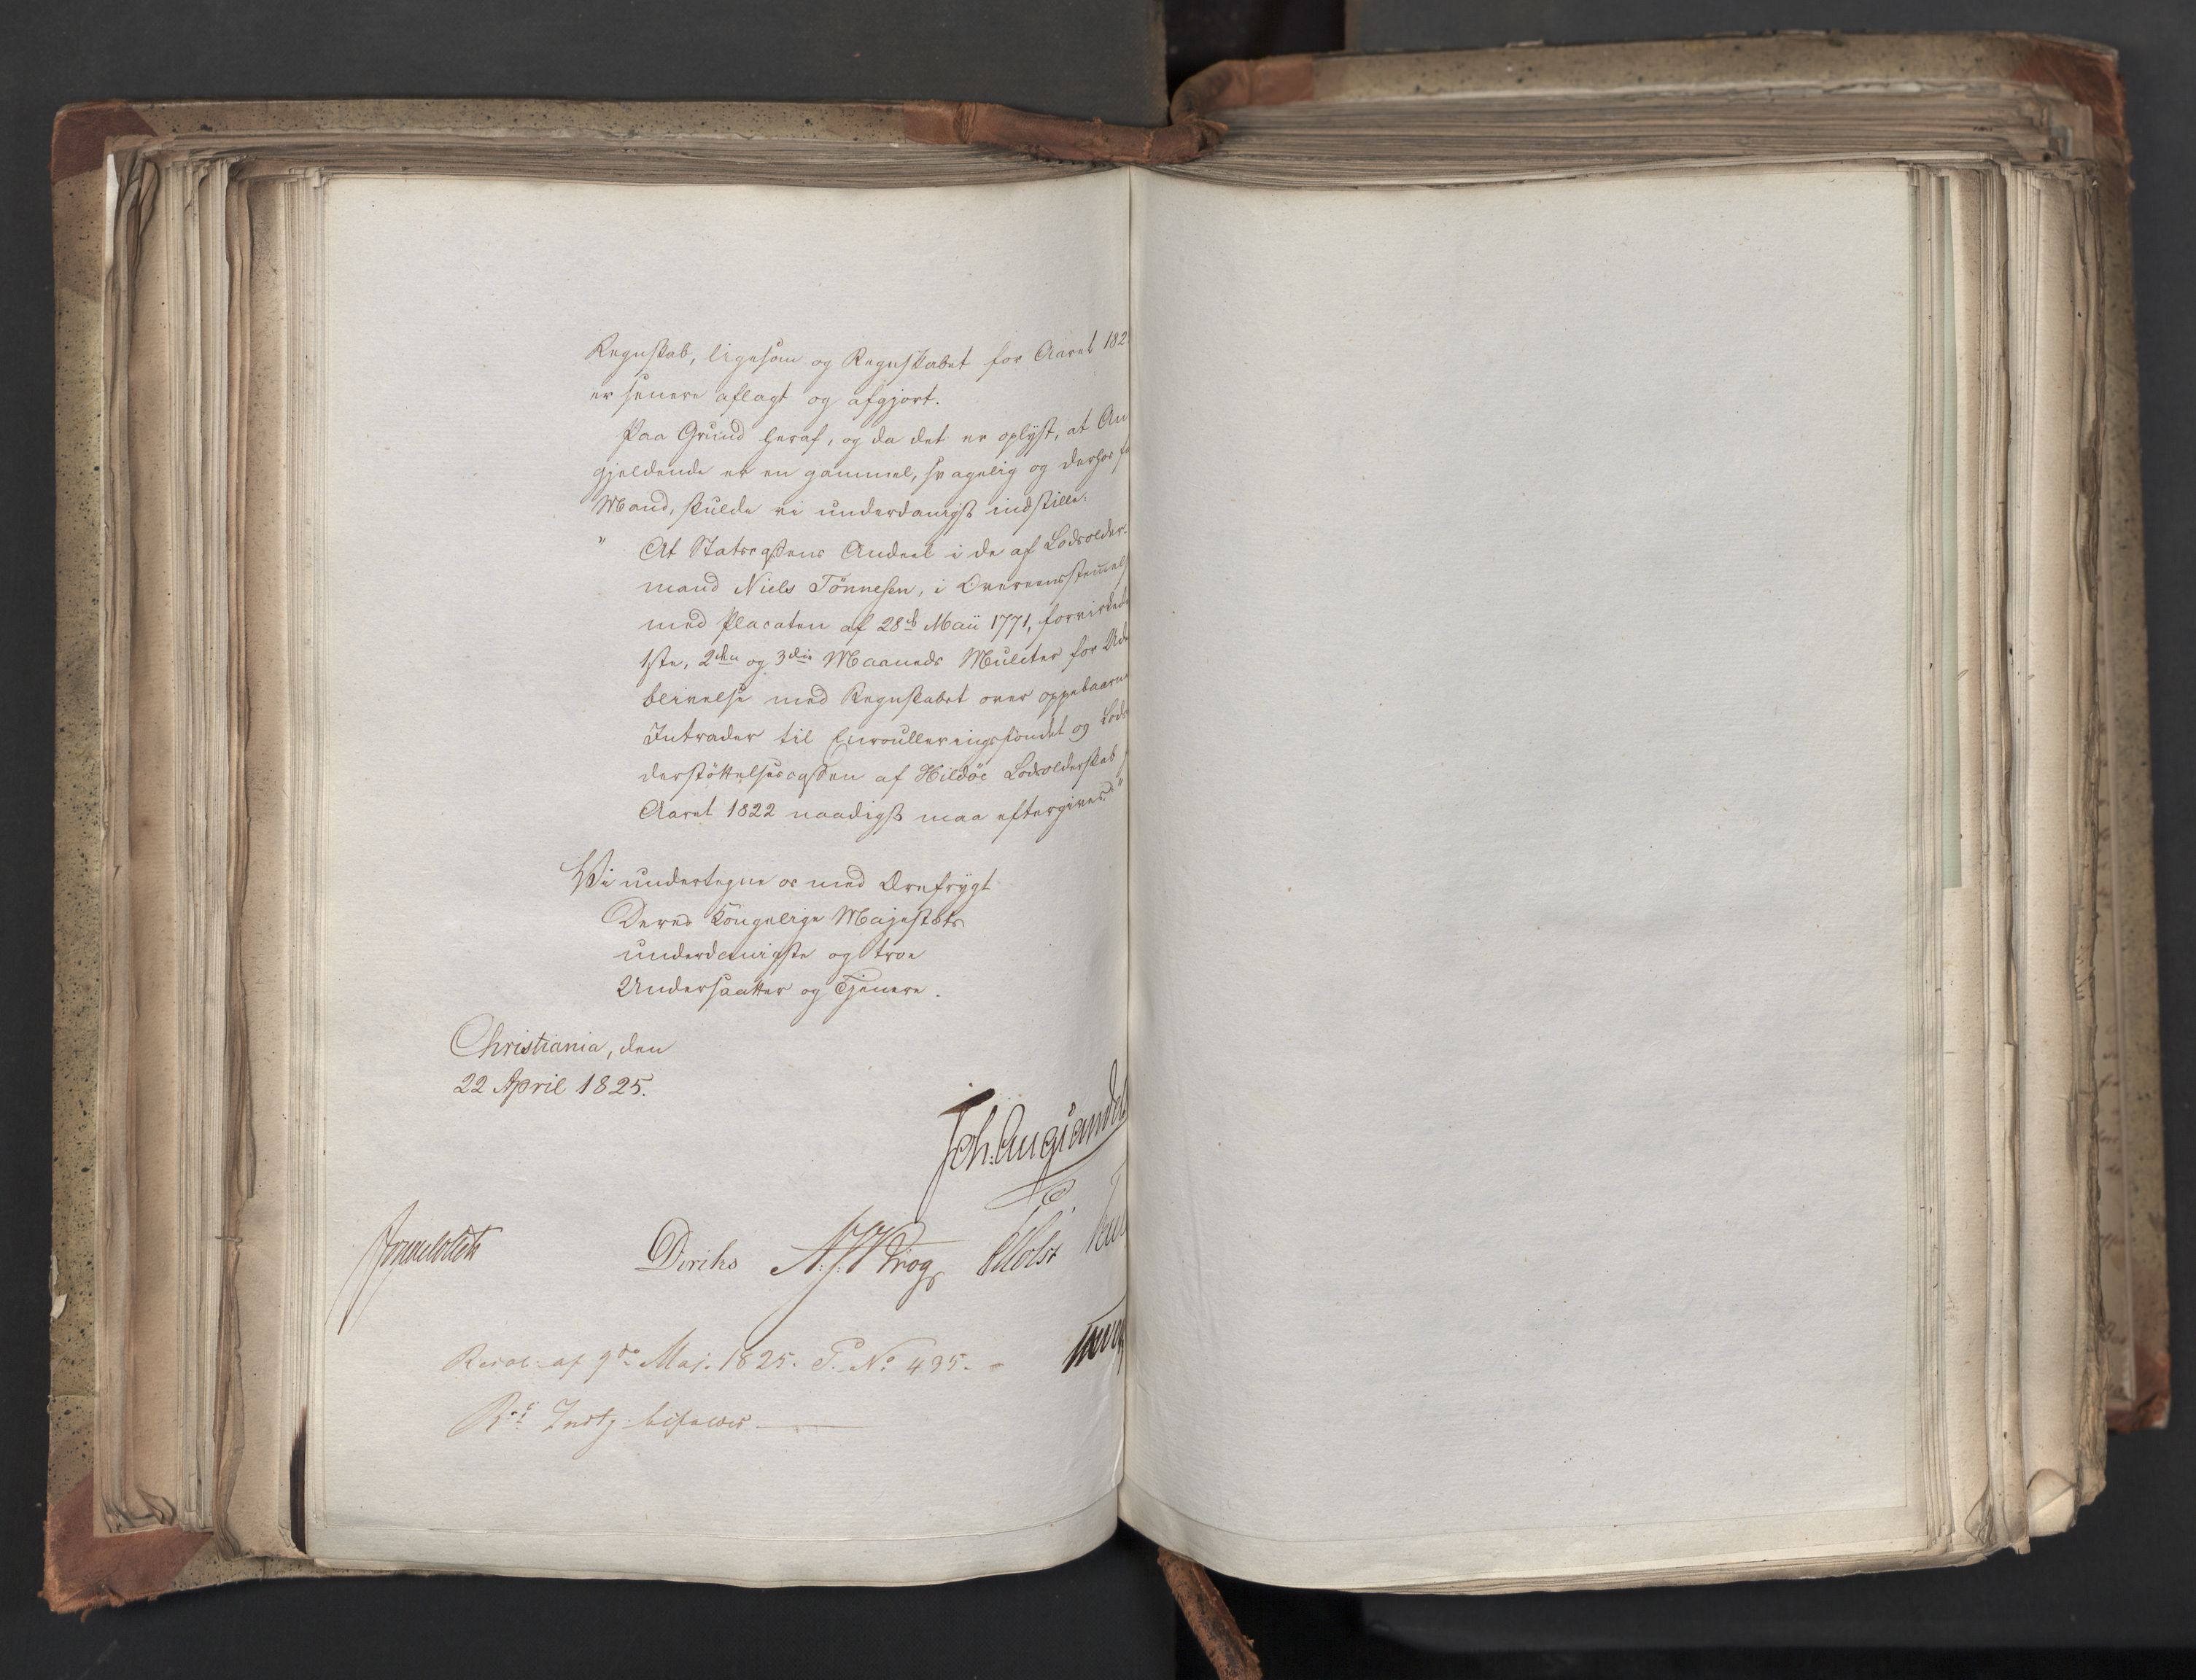 Regnskab, ligesom og Regnskabet for Aaret 182
er senere aflagt og afgjort.
Paa Grund heraf, og da det er oplyst, at An
gjeldende er en gammel, svagelig og derhos
Mand, skulde vi underdanigst indstille:
" At Statscassens Andeel i de af Lodsolder-
mand Niels Tönnesen, i Overeensstemmels
med Placaten af 28de Maii 1771, forvirkede
1ste, 2den og 3die Maaneds Mulcter for Ude
blivelse med Regnskabet over oppebaarne
Intrader til Enroulleringsfondet og Lods
derstöttelsescassen af Hildöe Lodsolderskab
Aaret 1822 naadigst maa eftergives."
Vi undertegne os med Ærefrygt
Deres Kongelige Majestæts
underdanigste og troe
Undersaatter og Tjenere.
Christiania, den
22 April 1825.
Joh: Aug: Sandel
Sommelth Diriks A. J. Krog PHolst
Resol: af 9de Maj. 1825. P. No 435.
Rs Indst: bifaldes.